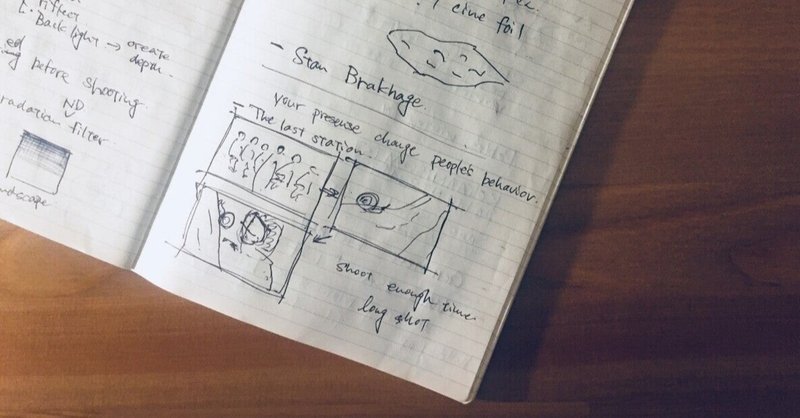 Back light → create
depth.
before shooting.
ND
filter
cine foil
- Stan Brakhage.
your presense change people's behavior.
- The last station.
shoot enough time.
long shot